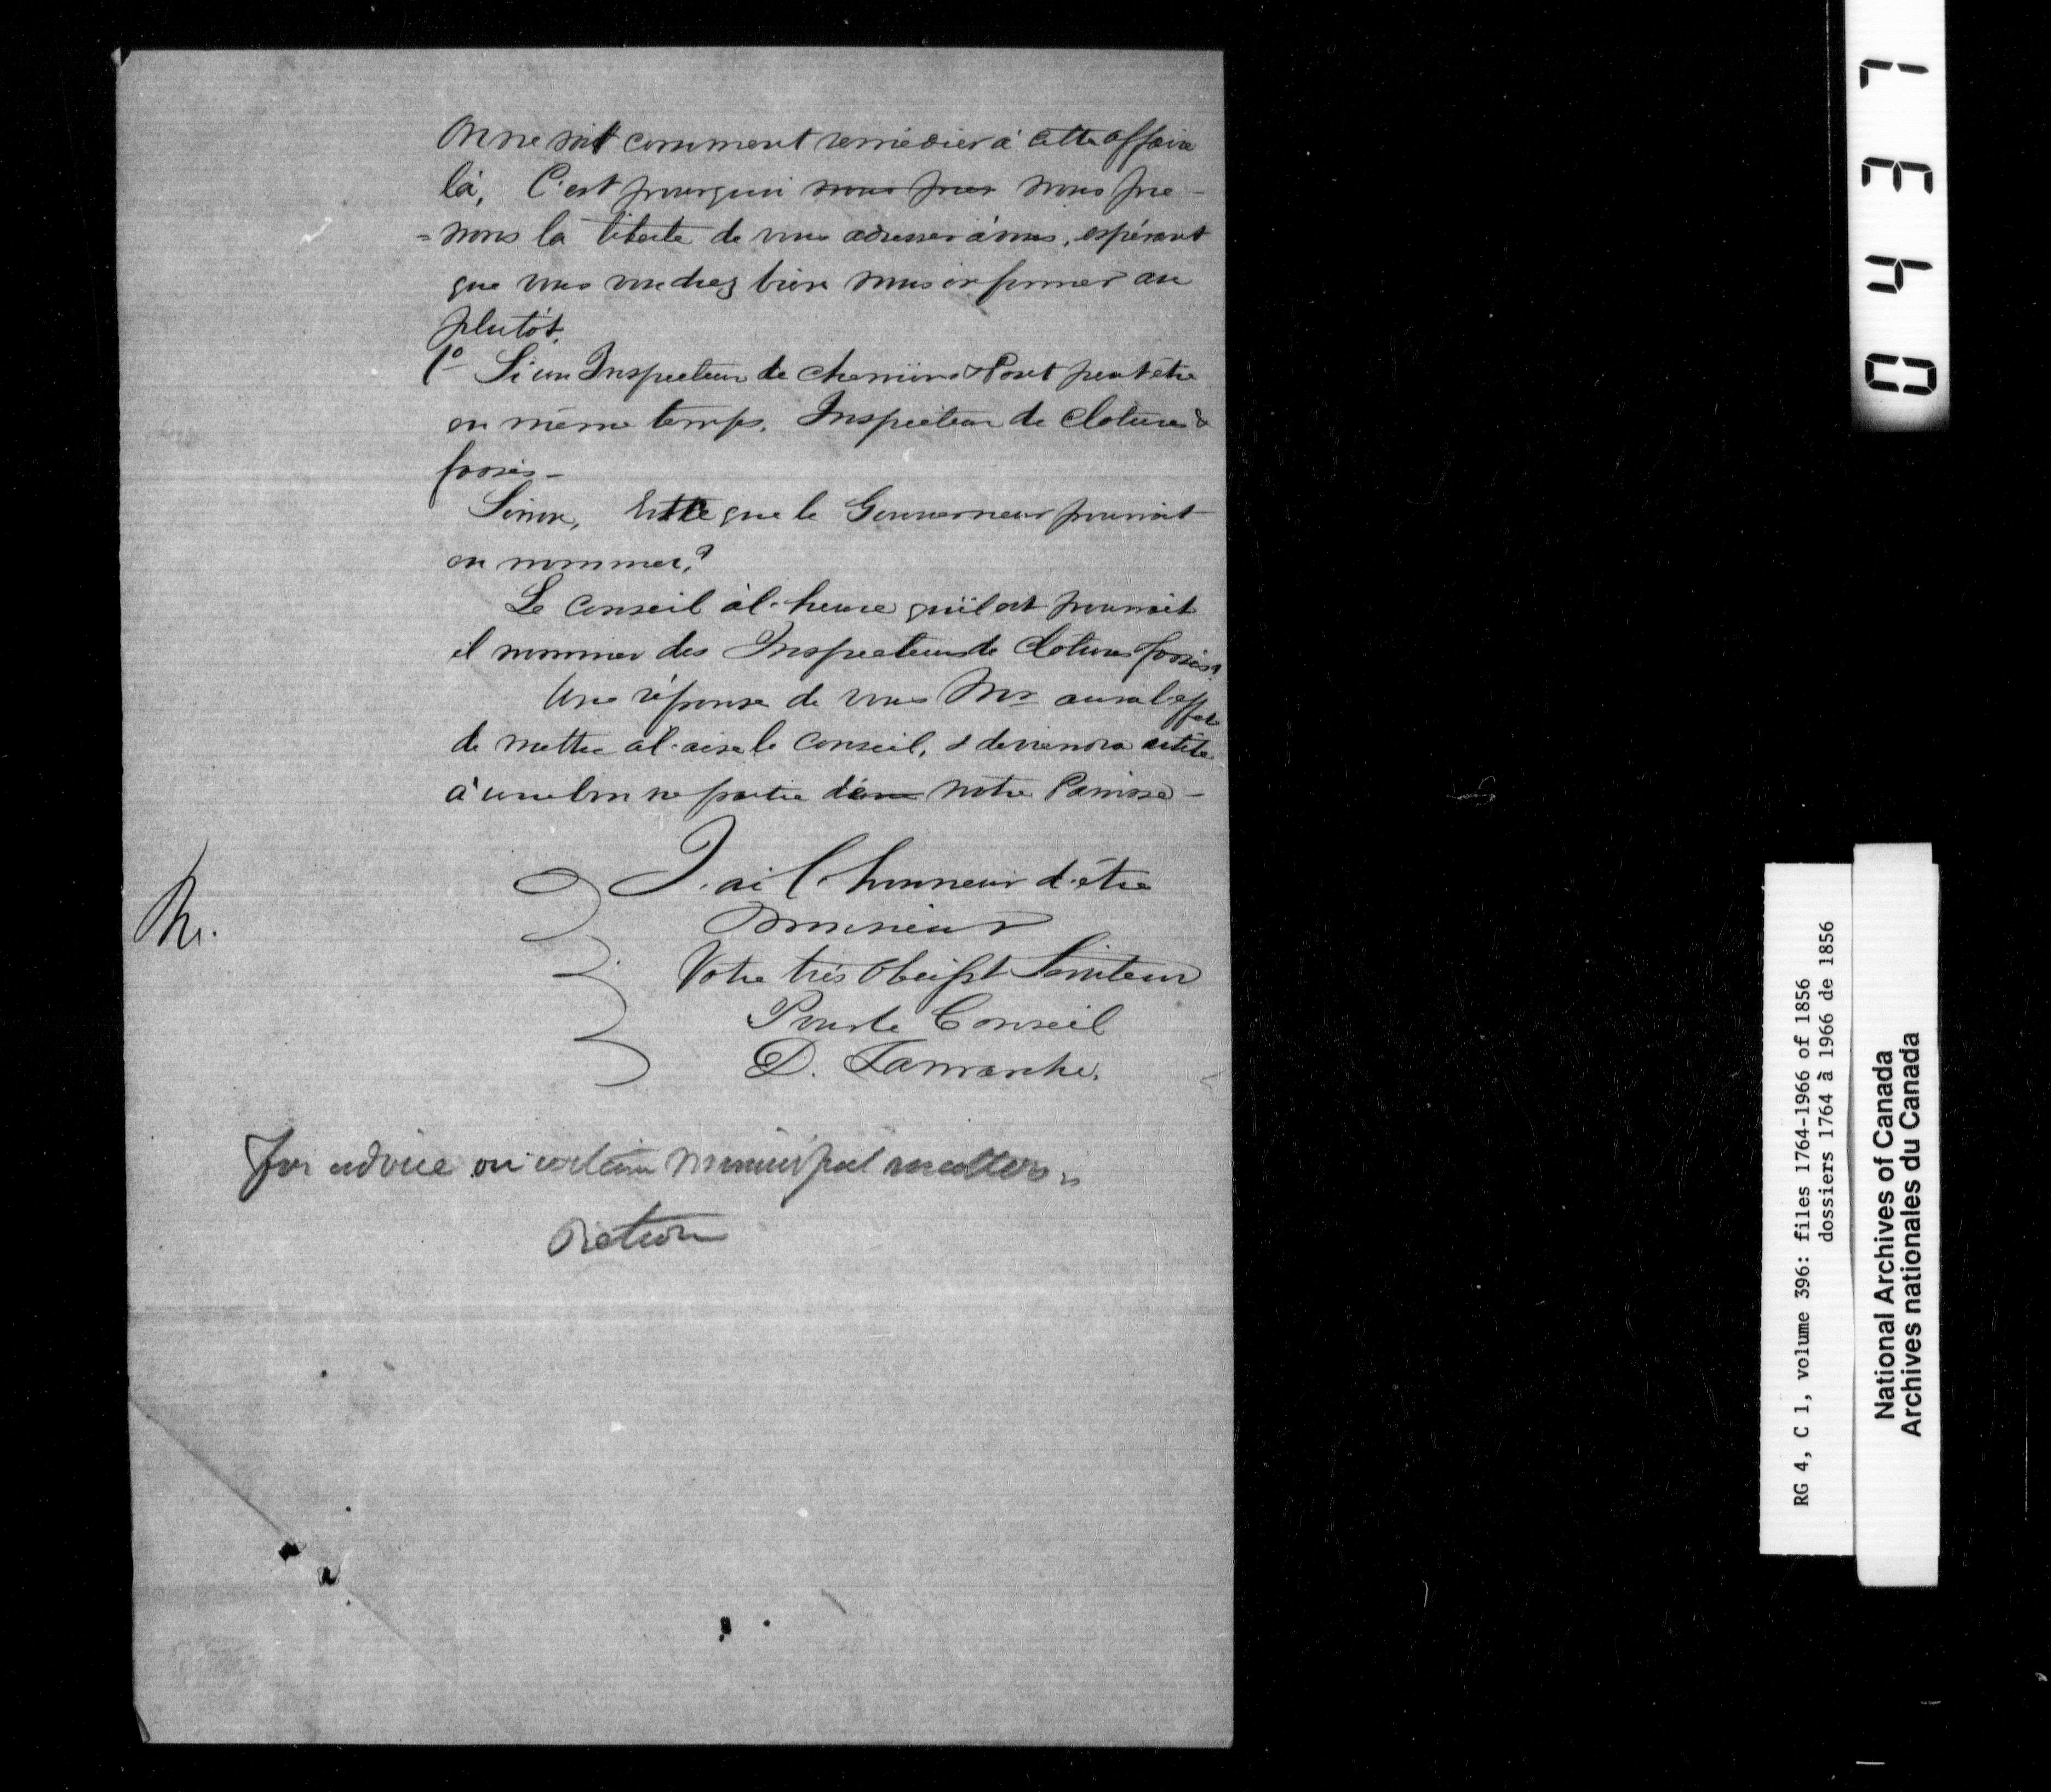 On ne sait comment remédier à cette affaire
là, C'est pourquoi nous pren nous pre-
=nons la liberté de vous adresser à vous, espérant
que vous voudrez bien nous informer au
plutôt.
1º Si un Inspecteur de chemins & Pont peut être
en même temps, Inspecteur de clotures &
fossés-
Sinon, Est-ce que le Gouverneur pourrait
en nommer?
Le Conseil à l'heure qu'il est pourrait
il nommer des Inspecteurs de clotures fossés?
Une réponse de vous Mr aura l'effet
de mettre à l'aise le Conseil, & deviendra utile
à une bonne partie de notre Paroisse-
J'ai l'honneur d'être
Monsieur
Votre très Obeisst Serviteur
Pour le Conseil
D. Lamarche.
For advice on certain Municipal matters
0437
RG 4, C 1, volume 396: files 1764-1966 of 1856
dossiers 1764 à 1966 de 1856
National Archives of Canada
Archives nationales du Canada